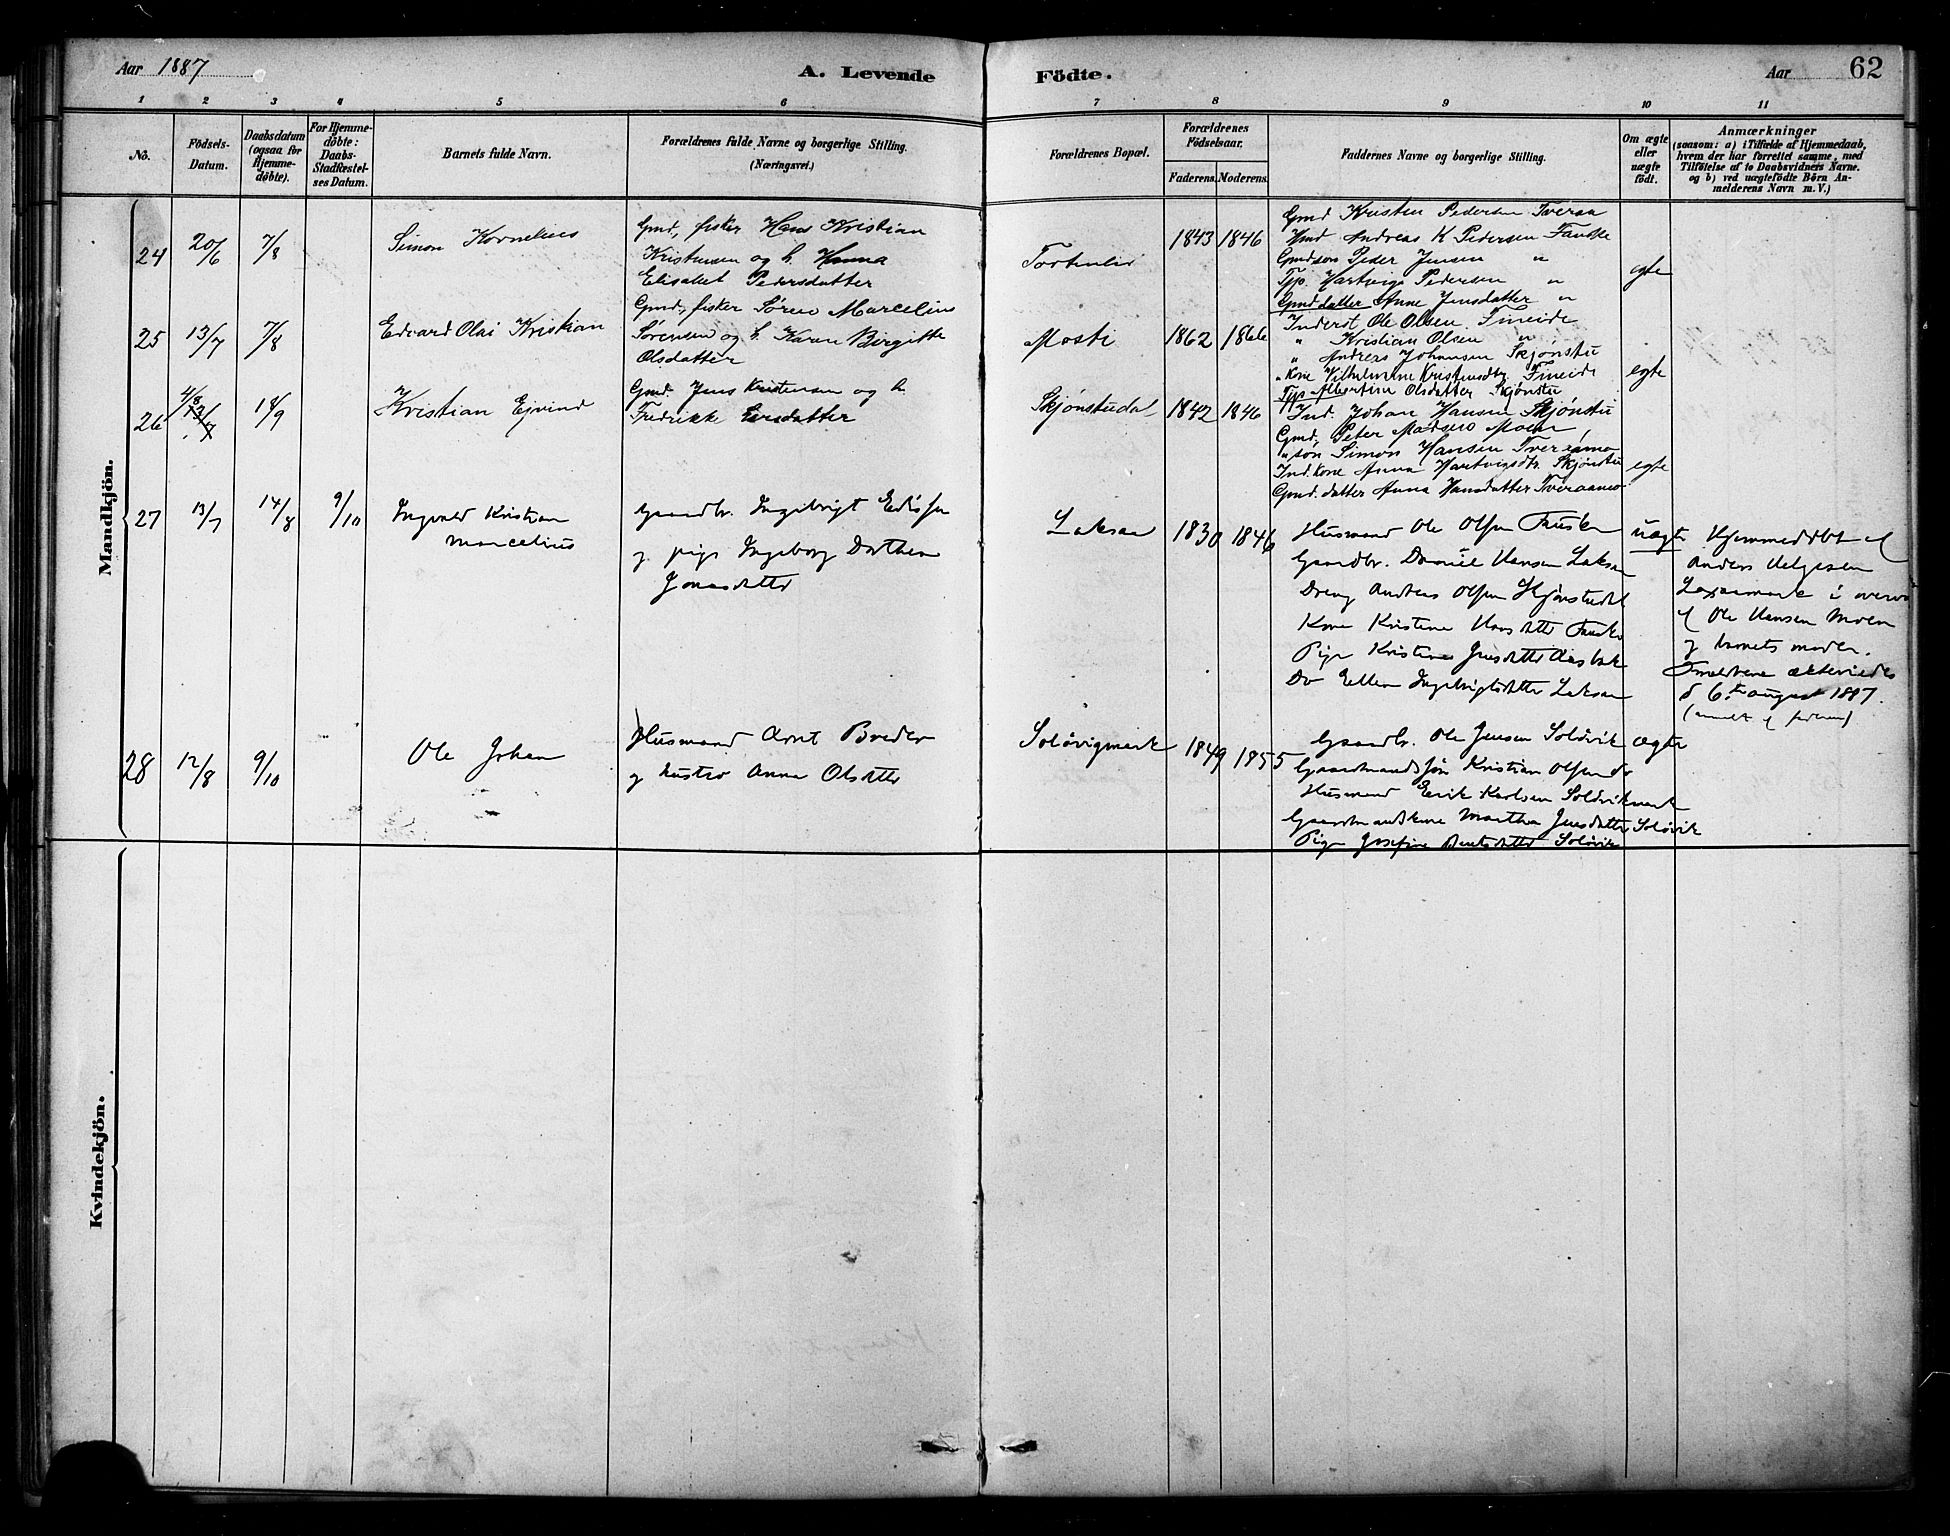 Aar 1887
A. Levende Födte.
Aar 62
1 2 3 4 5 6 7 8 9 10 11
No.
Födsels-Datum.
Daabsdatum (ogsaa for Hjemme-döbte).
For Hjemme-döbte: Daabs-Stadfæstel-ses Datum.
Barnets fulde Navn.
Forældrenes fulde Navne og borgerlige Stilling.
(Næringsvei.)
Forældrenes Bopæl.
Forældrenes Födselsaar.
Faderens. Moderens.
Faddernes Navne og borgerlige Stilling.
Om ægte eller uægte födt.
Anmærkninger
(saasom: a) i Tilfælde af Hjemmedaab,
hvem der har forrettet samme, med
Tilföielse af to Daabsvidners Navne.
og b) ved uægtefödte Börn An-
melderens Navn m. V.)
Mandkjön.
24 20/6 7/8 Simon Kornelius
Gmd, fisker Hans Kristian
Kristensen og h. Hanna
Elisabet Pedersdatter
1843 1846
Gmd Kristen Pedersen Tveraa
Hmd Andreas K Pedersen Fauske
Gmdsøn Peder Jensen "
Tjp. Hartviga Pedersen "
Gmd.datter Anne Jensdatter "
egte
25 13/7 7/8 Edvard Olai Kristian
Gmd, fisker Søren Marcelius
Sørensen og h. Karen Birgitte
Olsdatter
Mosti 1862 1866
Inderst Ole Olsen Fineide
" Kristian Olsen "
" Andreas Johansen Skjønstu
" Kone Vilhelmine Kristensdtr Fineide
Tjp Albertine Olsdatter Skjønstu
egte
26 4/8 13/7 18/9 Kristian Ejvind
Gmd. Jens Kristensen og h.
Fredrikke Larsdatter
Skjønstudal 1842 1846
Ind. Johan Hansen Skjønstu
Gmd, Peter Madsen Moen
" søn Simon Hansen Tveraamo
Ind. kone Anna Hartvigsdtr. Skjønstu
Gmd. datter Anna Hansdatter Tveraamo
egte
27 13/7 14/8 9/10 Ingvald Kristian
Marcelius
Gaardbr. Ingebrigt
g pige Ingeborg Dorthea
Jonasdatter
Laksaa 1830 1846
Husmand Ole Olsen Fauske
Gaardbr. Daniel Hansen Laksaa
Dreng Andreas Olsen Skjønstudal
Kone Kristine Hansdatter Fauske
Pige Kristine Jensdatter
Do Ellen Ingebrigtsdatter Laksaa
uægte
Hjemmedøbt af
Anders Helgesen
Laxaamark i overv
af Ole Hansen Moen
og barnets moder.
Forældrene ægteviedes
d 6.te august 1887.
(anmeldt af faderen)
28 12/8 9/10 Ole Johan
Husmand Arnt Breder
g hustro Anna Olsdatter
Soløvigmark 1849 1855
Gaardbr. Ole Jensen Soløvik
Gaardmandssøn Kristian Olsen do
Husmand Erik Karlsen Soløvikmark
Gaardmandskone Martha Jensdatter Soløvik
Pige Josefine Bentsdatter Soløvik
ægte
Kvindekjön.